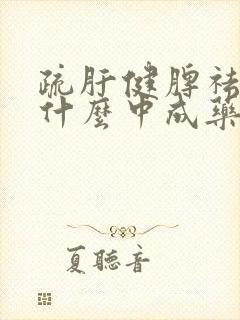 疏肝健脾祛
什麼中成藥
夏聽音